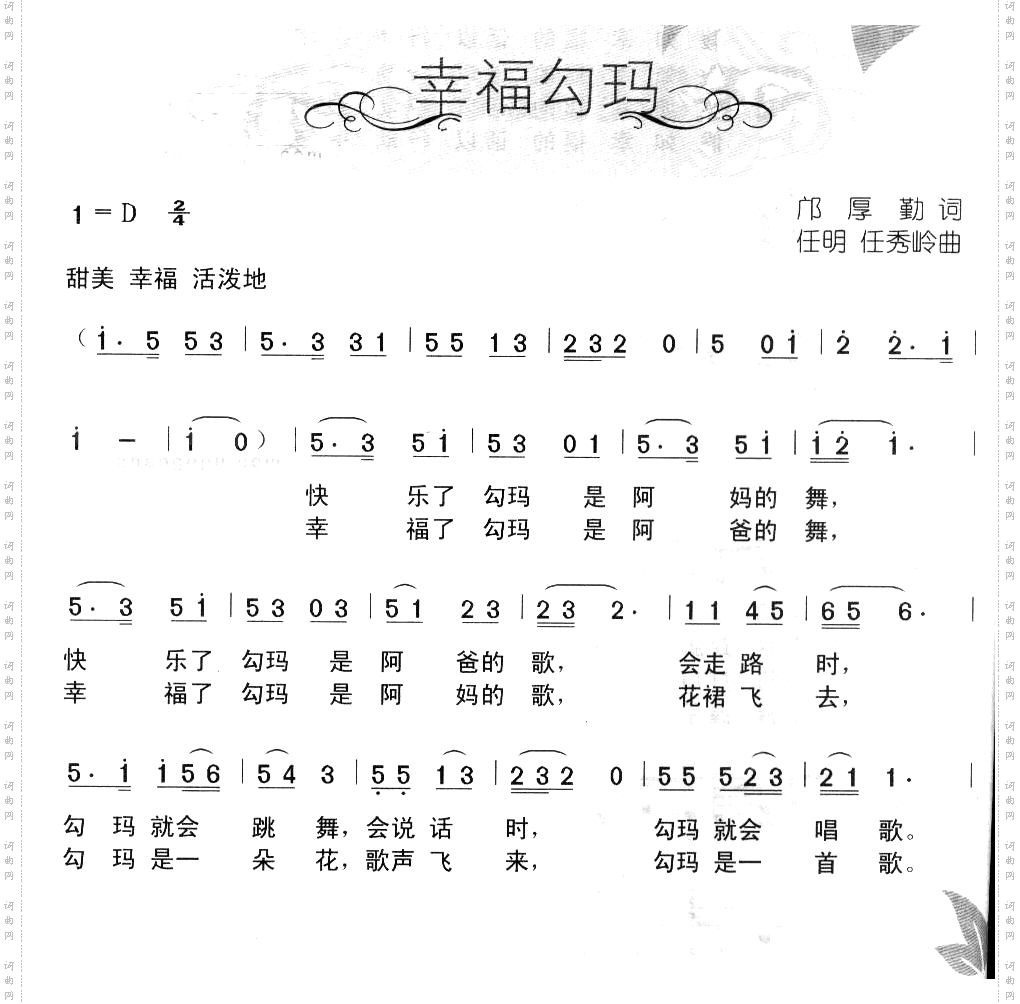 幸福勾玛
1 = D 2/4
邝 厚 勤 词
任明 任秀岭曲
甜美 幸福 活泼地
( i̇. 5 5 3 | 5. 3 3 1 | 5 5 1 3 | 2 3 2 0 | 5 0 i̇ | 2̇ 2̇. i̇ |
i̇ - | i̇ 0 ) | 5. 3 5 i̇ | 5 3 0 1 | 5. 3 5 i̇ | i̇ 2̇ i̇. |
快 乐了 勾玛 是 阿 妈的 舞,
幸 福了 勾玛 是 阿 爸的 舞,
5. 3 5 i̇ | 5 3 0 3 | 5 1 2 3 | 2 3 2. | 1 1 4 5 | 6 5 6. |
快 乐了 勾玛 是 阿 爸的 歌, 会走 路 时,
幸 福了 勾玛 是 阿 妈的 歌, 花裙 飞 去,
5. i̇ i̇ 5 6 | 5 4 3 | 5̣ 5̣ 1 3 | 2 3 2 0 | 5 5 5 2 3 | 2 1 1. |
勾 玛 就会 跳 舞, 会说 话 时, 勾玛 就会 唱 歌。
勾 玛 是一 朵 花, 歌声 飞 来, 勾玛 是一 首 歌。